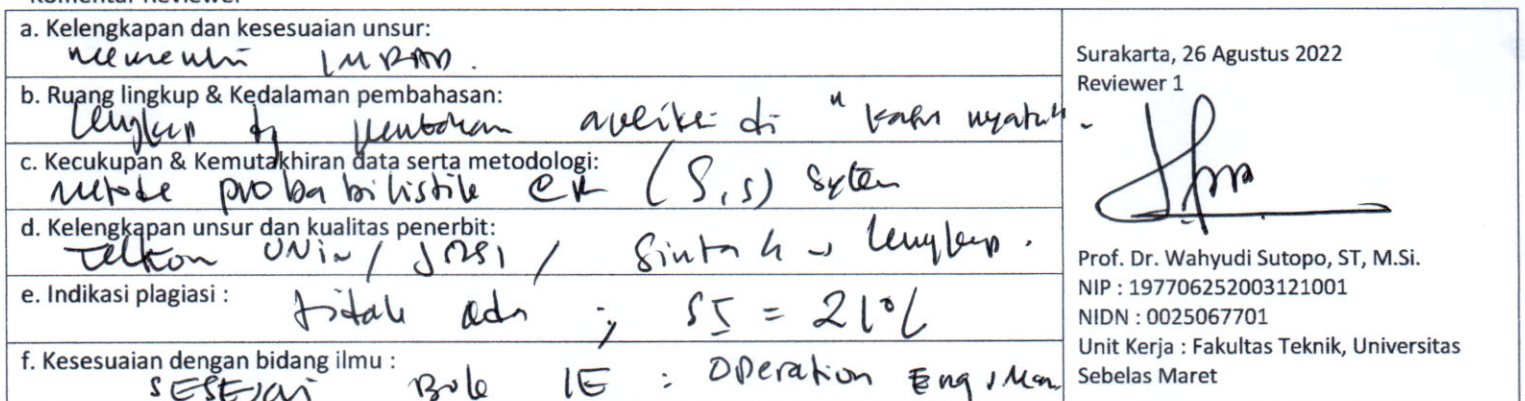 Komentar Reviewer
a. Kelengkapan dan kesesuaian unsur:
memenuhi IMRAD.
b. Ruang lingkup & Kedalaman pembahasan:
Lengkap di "
c. Kecukupan & Kemutakhiran data serta metodologi:
metode probabilistik (S,s)
d. Kelengkapan unsur dan kualitas penerbit:
Telkom Univ / JRSI / Sinta 4 → lengkap.
e. Indikasi plagiasi :
tidak ada ; SI = 21%
f. Kesesuaian dengan bidang ilmu :
SESUAI IE : Operation Eng
Surakarta, 26 Agustus 2022
Reviewer 1
Prof. Dr. Wahyudi Sutopo, ST, M.Si.
NIP : 197706252003121001
NIDN : 0025067701
Unit Kerja : Fakultas Teknik, Universitas
Sebelas Maret